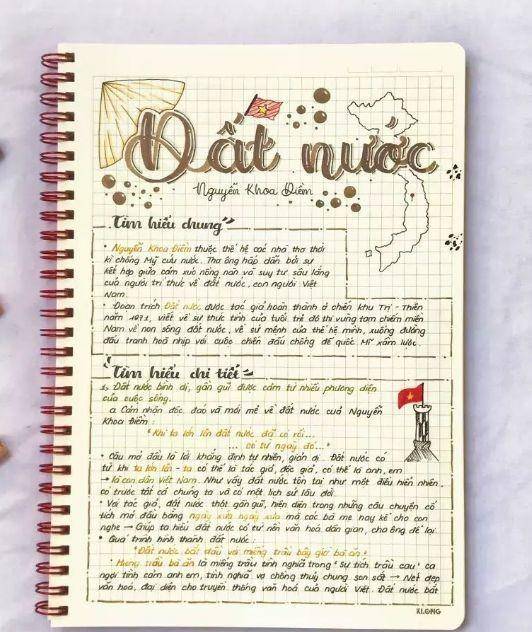 Đất nước
Nguyễn Khoa Điềm
Tìm hiểu chung
• Nguyễn Khoa Điềm thuộc thế hệ các nhà thơ thời
kì chống Mỹ cứu nước. Thơ ông hấp dẫn bởi sự
kết hợp giữa cảm xúc nồng nàn và suy tư sâu lắng
của người trí thức về đất nước, con người Việt
Nam.
• Đoạn trích Đất nước được tác giả hoàn thành ở chiến khu Trị - Thiên
năm 1971, viết về sự thức tỉnh của tuổi trẻ đô thị vùng tạm chiếm miền
Nam về non sông đất nước, về sứ mệnh của thế hệ mình, xuống đường
đấu tranh hoà nhịp với cuộc chiến đấu chống đế quốc Mĩ xâm lược.
Tìm hiểu chi tiết
1, Đất nước bình dị, gần gũi được cảm từ nhiều phương diện
của cuộc sống.
a. Cảm nhận độc đáo và mới mẻ về đất nước của Nguyễn
Khoa Điềm:
"Khi ta lớn lên đất nước đã có rồi...
... có từ ngày đó..."
• Câu mở đầu là lời khẳng định tự nhiên, giản dị. Đất nước có
từ khi ta lớn lên - ta có thể là tác giả, độc giả, có thể là anh, em
→ là con dân Việt Nam. Như vậy đất nước tồn tại như một điều hiển nhiên,
có trước tất cả chúng ta và có một lịch sử lâu đời.
• Với tác giả, đất nước thật gần gũi, hiện diện trong những câu chuyện cổ
tích mở đầu bằng ngày xửa ngày xưa mà các bà mẹ hay kể cho con
nghe → Giúp ta hiểu đất nước có từ nền văn hoá dân gian, cha ông để lại.
• Quá trình hình thành đất nước:
"Đất nước bắt đầu với miếng trầu bây giờ bà ăn"
- Miếng trầu bà ăn là miếng trầu tình nghĩa trong "Sự tích trầu cau" ca
ngợi tình cảm anh em, tình nghĩa vợ chồng thuỷ chung son sắt → Nét đẹp
văn hoá, đại diện cho truyền thống văn hoá của người Việt. Đất nước bắt
KLONG